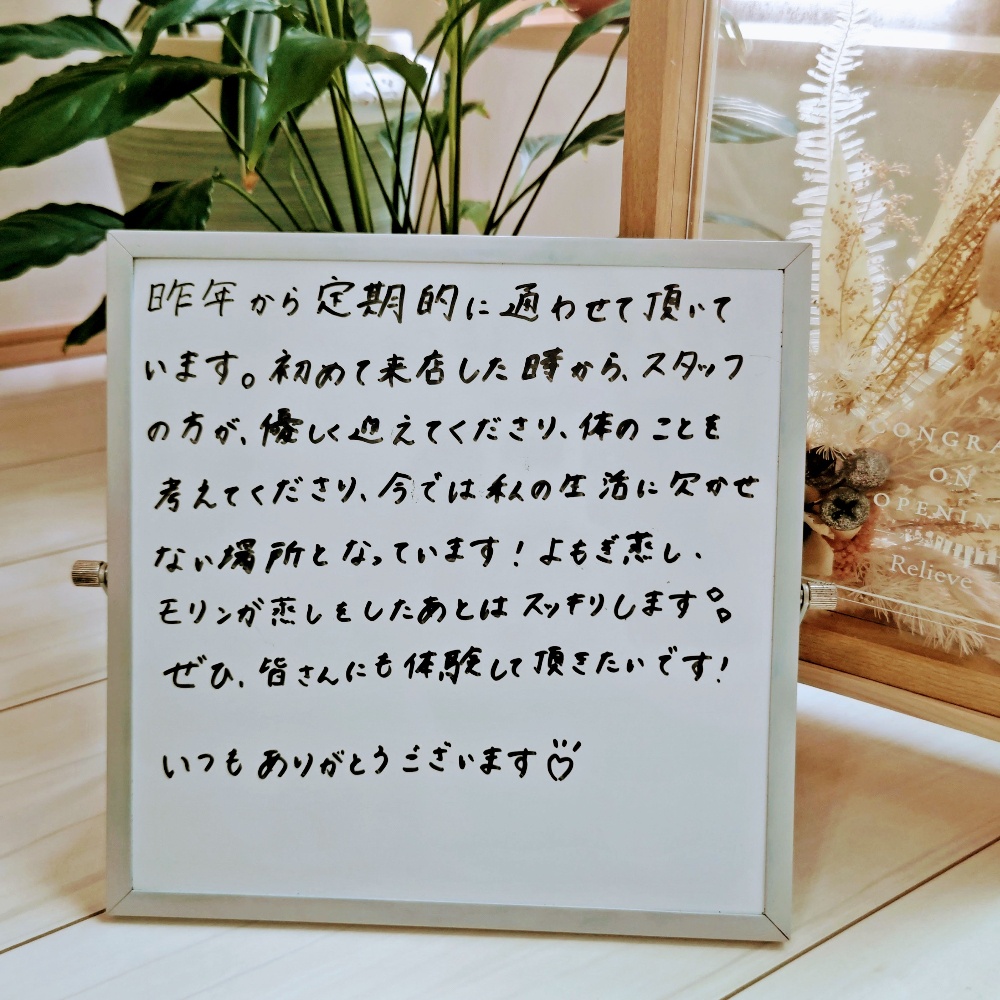 昨年から定期的に通わせて頂いて
います。初めて来店した時から、スタッフ
の方が、優しく迎えてくださり、体のことを
考えてくださり、今では私の生活に欠かせ
ない場所となっています！よもぎ蒸し、
モリンガ蒸しをしたあとはスッキリします
ぜひ、皆さんにも体験して頂きたいです！
いつもありがとうございます♡
CONGRA
ON
OPENIN
Relieve